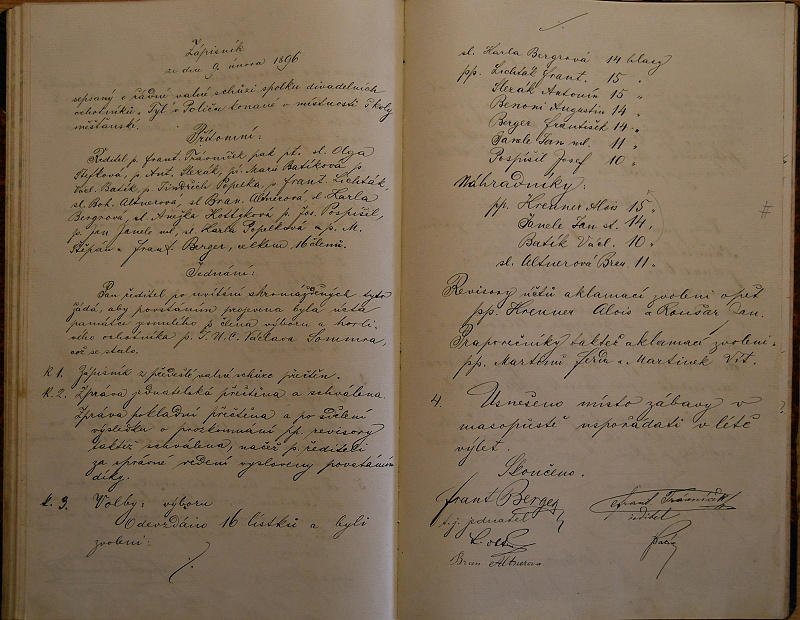 Zápisník
ze dne 9. února 1896
sepsaný o řádné valné schůzi spolku divadelních
ochotníků „Tyl" v Poličce konané v místnosti školy
měšťanské.
Přítomní:
Ředitel p. Frant. Trávníček pak pí. sl. Olga
p. Ant. Slezák, pí. Marie Batíková p
Václ. Batík, p. Jindřich Popelka, p. Frant. Lichták,
sl. Boh. Altnerova, sl. Bran. Altnerová, sl. Karla
Bergrová, sl. Anežka p. Jos. Pospíšil,
p. Jan Janele ml., sl. Karla Popelková a p. M.
Štěpán a Frant. Berger, celkem 16 členů.
Jednání:
Pan ředitel po uvítání shromážděných tyto
žádá, aby povstáním projevena byla úcta
památce zesnulého p. člena výboru a horli-
vého ochotníka p. J.U.C. Václava Sommra,
což se stalo.
k 1. Zápisník z předešlé valné schůze přečten.
k. 2. Zpráva jednatelská přečtena a schválena.
Zpráva pokladní přečtena a po sdělení
výsledku o prozkoumání pp. revisory
taktéž schválena, načež p. řediteli
za správné vedení vysloveny povstáním
díky.
k. 3. Volby: výboru
Odevzdáno 16 lístků a byli
zvoleni:
sl. Karla Bergrová 14 hlasy
pp. Lichták Frant. 15 „
Slezák Antonín 15 „
Benoni Augustin 14 „
Berger František 14 „
Janele Jan ml. 11 „
Pospíšil Josef 10 „
Náhradníky:
pp. Krenner Alois 15 „
Janele Jan st. 14 „
Batík Václ. 10 „
sl. Altnerová Bran 11 „
Revisory účtů aklamací zvoleni opět
pp. Krenner Alois a Roušar Jan.
Praporečníky taktéž aklamací zvoleni.
pp. Martinů Ferd. a Martinek Vít.
4. Usneseno místo zábavy v
masopustě uspořádati v létě
výlet.
Skončeno.
Frant Berger
t. č. jednatel
Frant Trávníček
ředitel
Bran Altnerova